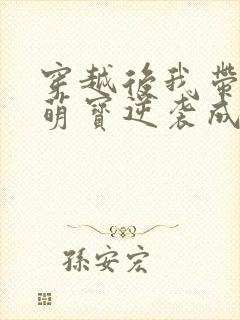 穿越後我帶
萌寶逆袭成
孫安宏